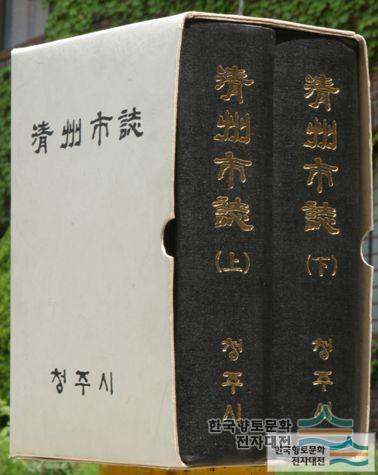 淸州市誌
청주시
淸州市誌
(上)
청주시
淸州市誌
(下)
청주시
한국향토문화
전자대전
한국향토문화
전자대전